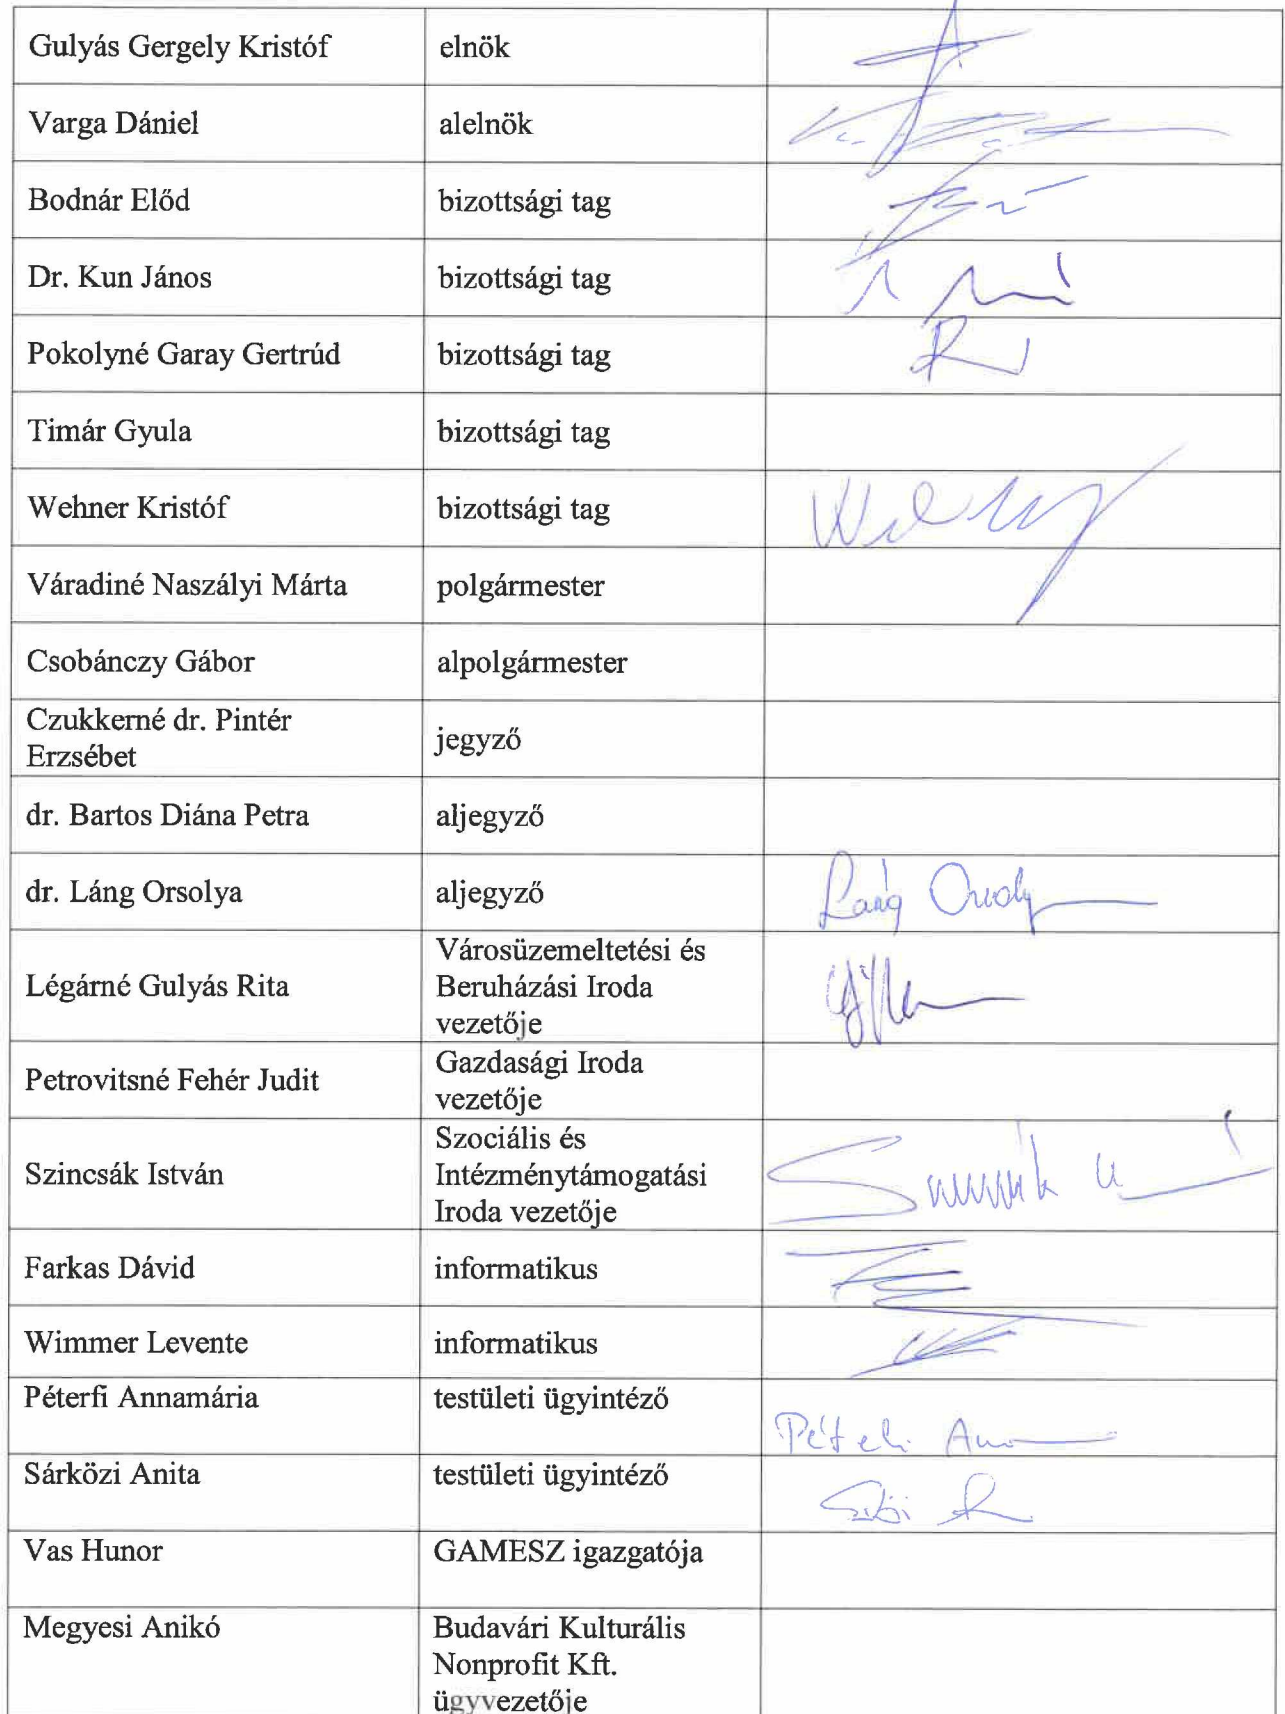 Gulyás Gergely Kristóf
elnök
Varga Dániel
alelnök
Bodnár Előd
bizottsági tag
Dr. Kun János
bizottsági tag
Pokolyné Garay Gertrúd
bizottsági tag
Timár Gyula
bizottsági tag
Wehner Kristóf
bizottsági tag
Váradiné Naszályi Márta
polgármester
Csobánczy Gábor
alpolgármester
Czukkerné dr. Pintér
Erzsébet
jegyző
dr. Bartos Diána Petra
aljegyző
dr. Láng Orsolya
aljegyző
Láng
Légárné Gulyás Rita
Városüzemeltetési és
Beruházási Iroda
vezetője
Petrovitsné Fehér Judit
Gazdasági Iroda
vezetője
Szincsák István
Szociális és
Intézménytámogatási
Iroda vezetője
Farkas Dávid
informatikus
Wimmer Levente
informatikus
Péterfi Annamária
testületi ügyintéző
Sárközi Anita
testületi ügyintéző
Vas Hunor
GAMESZ igazgatója
Megyesi Anikó
Budavári Kulturális
Nonprofit Kft.
ügyvezetője